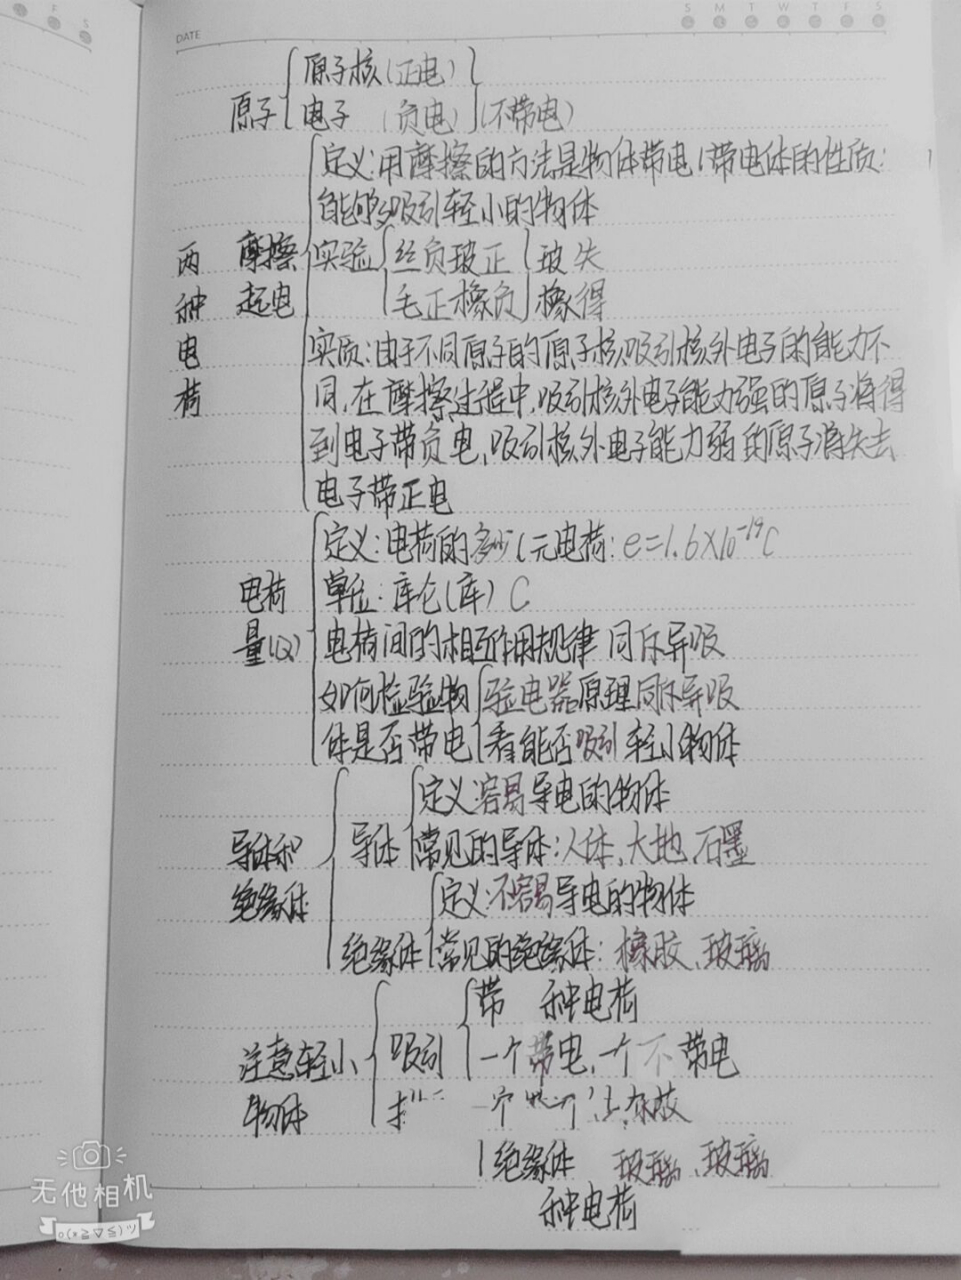 S M T W T F S
DATE
原子核(正电)
原子 电子 (负电) (不带电)
定义:用摩擦的方法是物体带电(带电体的性质:
能够吸引轻小的物体
两 摩擦 实验 丝负玻正 玻失
种 起电 毛正橡负 橡得
电 实质:由于不同原子的原子核吸引核外电子的能力不
荷 同,在摩擦过程中,吸引核外电子能力强的原子将得
到电子带负电,吸引核外电子能力弱的原子将失去
电子带正电
定义:电荷的多少(元电荷:e=1.6×10⁻¹⁹C
电荷 单位:库仑(库) C
量(Q) 电荷间的相互作用规律 同斥异吸
如何检验物 验电器原理同斥异吸
体是否带电 看能否吸引轻小物体
定义:容易导电的物体
导体和 导体 常见的导体:人体、大地、石墨
绝缘体 定义:不容易导电的物体
绝缘体 常见的绝缘体:橡胶、玻璃
带 种电荷
注意轻小 吸引 一个带电,一个不带电
物体
绝缘体 玻璃、玻璃
种电荷
无他相机